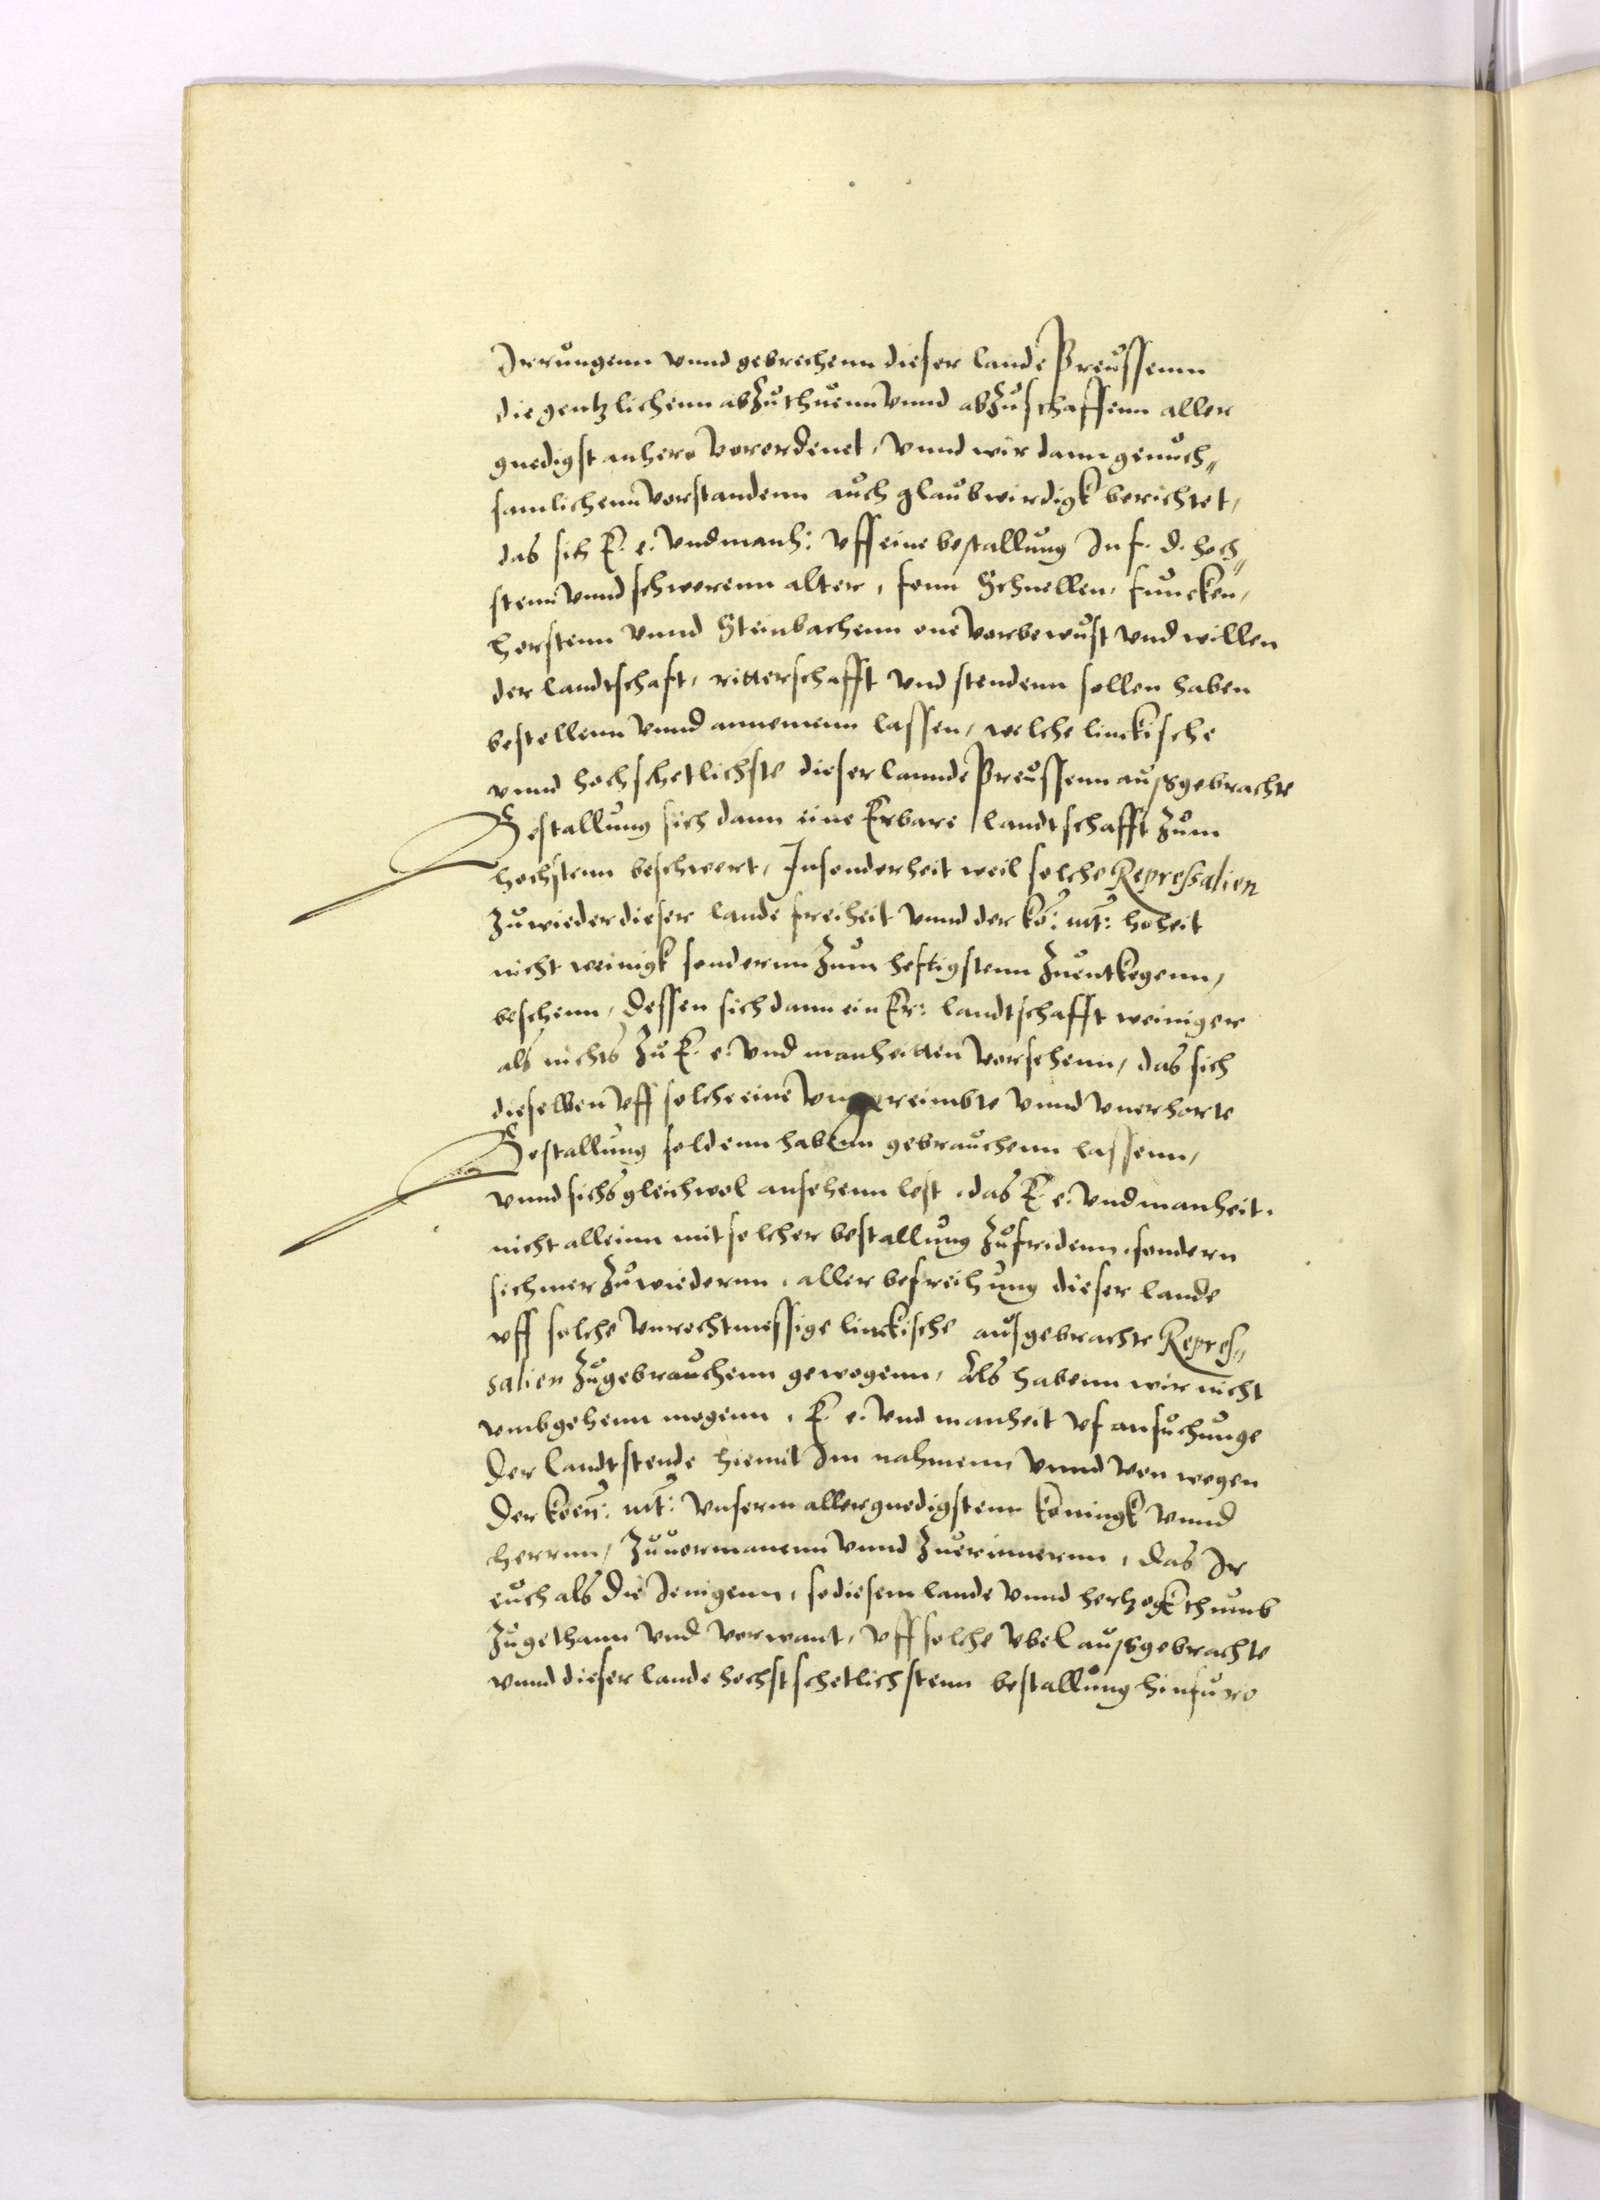 Irrungenn vnnd gebrechenn dieser lande Preussenn
die gentzlichenn abzuthuenn vnnd abzuschaffenn aller
gnedigst anhero verordenet, vnnd wir dann genuch„
samlichenn vorstandenn auch glaubwirdigk berichtet,
das sich E. e. vnd manh: vff eine bestallung In f. d. hoch„
stenn vnnd schwerenn alter, fonn Schnellen, funcken,
horstenn vnnd Steinbachenn one vorbewust vnd willen
der landtschaft, ritterschafft vnd stendenn sollen haben
bestellenn vnnd annemenn lassen, welche linckische
vnnd hochschetlichste dieser lannde Preussenn außgebrachte
Bestallung sich dann eine Erbare landtschafft zum
hochstenn beschwert, Insonderheit weil solche Repressalien
zuwieder dieser lande freiheit vnnd der ko: mt: hoheit
nicht weinigk sondernn zum heftigstenn zuentkegenn,
beschenn, dessen sich dann ein Er: landtschafft weiniger
als nichts zu E. e. vnd manheitten vorsehenn, das sich
dieselben vff solche eine vngereimbte vnnd vnerhorte
Bestallung soldenn habenn gebrauchenn lassenn,
vnnd sichs gleichwol ansehenn lest, das E. e. vnd manheit,
nicht alleinn mit solcher bestallung zufridenn, sondern
sich mer zuwiedernn, aller befreihung dieser lande
vff solche vnrechtmessige linckische ausgebrachte Repres„
salien zugebrauchenn gewogenn, Als habenn wir nicht
vmbgehenn mogenn, E. e. vnd manheit vf ansuchunge
der landtstende hiemit Im nahmenn vnnd von wegen
der koen: mt: vnserm allergnedigstenn koningk vnnd
herrnn, zuuormanenn vnnd zuerinnernn, das Ir
euch als die Jenigenn, so diesem lande vnnd hertzogkthumb
zugethann vnd vorwant, vff solche vbel außgebrachte
vnnd dieser lande hochst schetlichstenn bestallung hinfuro